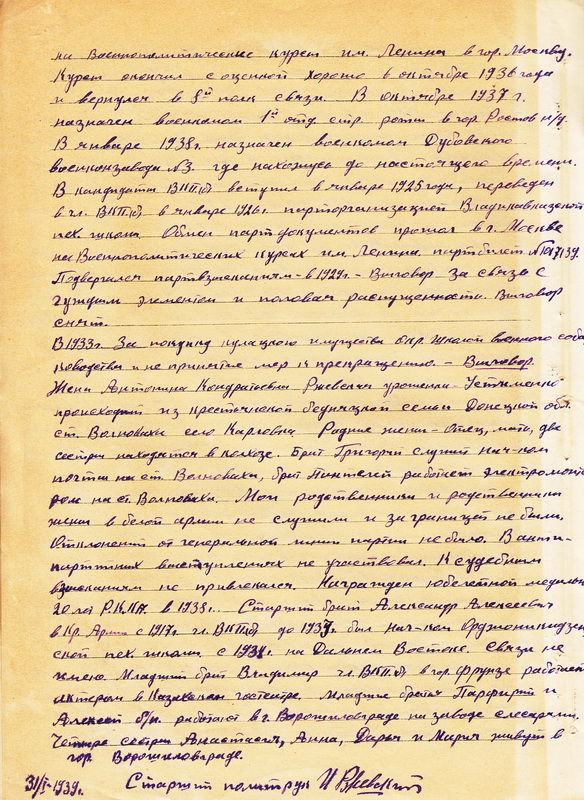 на Военнополитические курсы им. Ленина в гор. Москву.
Курсы окончил с оценкой хорошо в октябре 1936 года
и вернулся в 8й полк связи. В октябре 1937 г.
назначен военкомом 1й отд. стр. роты в гор. Ростов н/Д.
В январе 1938 г. назначен военкомом Дубовского
военконзавода №3 где нахожусь до настоящего времени.
В кандидаты ВКП(б) вступил в январе 1925 года, переведен
в чл. ВКП(б) в январе 1926 г. парторганизацией Владикавказской
пех. школы. Обмен партдокументов прошел в г. Москве
на Военнополитических курсах им. Ленина, партбилет №
Подвергался партвзысканиям - в 1929 г. - Выговор за связь с
чуждым элементом и половая распущенность. Выговор
снят.
В 1933 г. За покупку кулацкого имущества Окр. школой военного соба
ководства и не принятие мер к прекращению. - Выговор.
Жена Антонина Кондратьевна урожденная - Устименко
происходит из крестьянской бедняцкой семьи Донецкой обл.
ст. Волноваха село Карловка Родные жены - Отец, мать, две
сестры находятся в колхозе. Брат Григорий служит нач-ком
почты на ст. Волноваха, брат Пантелей работает электромонте
ром на ст. Волноваха. Мои родственники и родственники
жены в белой армии не служили и за границей не были.
Отклонений от генеральной линии партии не было. В анти-
партийных выступлениях не участвовал. К судебным
взысканиям не привлекался. Награжден юбилейной медалью
20 лет Р.К.К.А. в 1938 г. Старший брат Александр Алексеевич
в Кр. Армии с 1917 г. чл. ВКП(б) до 1937 г. был нач-ком Орджоникидзев
ской пех. школы с 1937 г. на Дальнем Востоке. Связи не
имею. Младший брат Владимир чл. ВКП(б) в гор. Фрунзе работает
актером в гостеатре. Младшие братья Парфирий и
Алексей б/п. работают в г. Ворошиловграде на заводе слесарями.
Четыре сестры Анастасия, Анна, Дарья и Мария живут в
гор. Ворошиловграде.
31/I-1939 г. Старший политрук